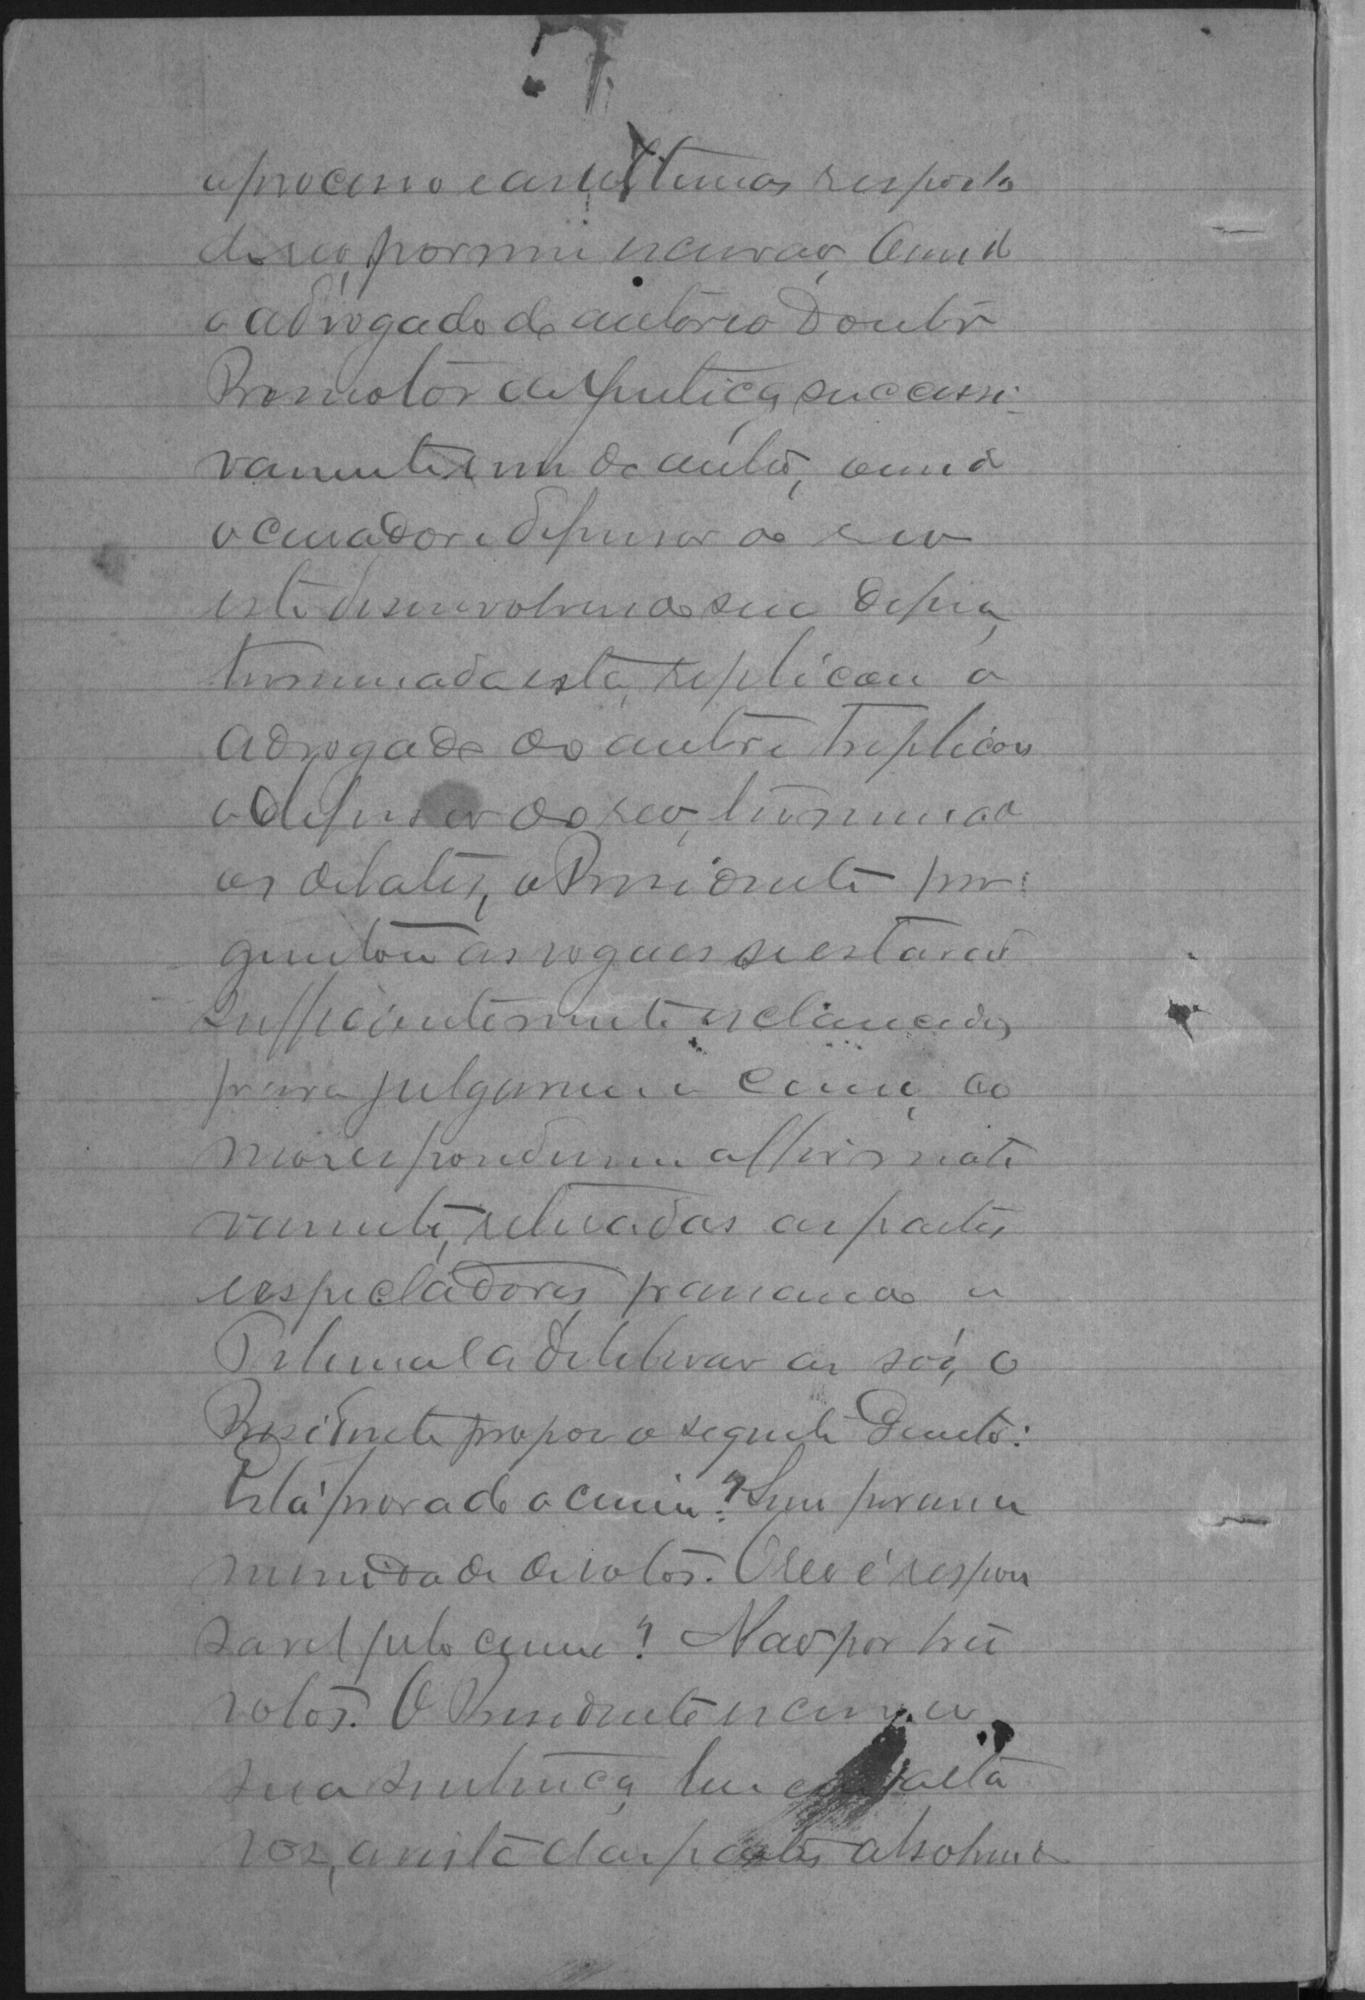 o processo e as ultimas resposta
do reo, por mim escrivão, accusa
o advogado do autor e o Doutor
Promotor da Justiça, successi-
vamente em de autor,
o curador e defensor do reo
este desenvolvendo sua defesa,
terminada esta, replicou o
Advogado do autor e treplicou
o defensor do reo, terminado
os debates, o Presidente per-
guntou as vogaes se estavão
sufficientemente esclarecidos
para julgarem a causa, ao
que responderam affirmati
vamente, retiradas as partes
e espectadores, passando o
Tribunal a deliberar a sós, o
Presidente propoz o seguinte quesito:
Está provado o crime? Sim por una
nimidade de votos. O reo é respon
savel pelo crime? Não por tres
votos. O Presidente escreveu
sua sentença, leu em alta
voz, a vista das partes absolvendo